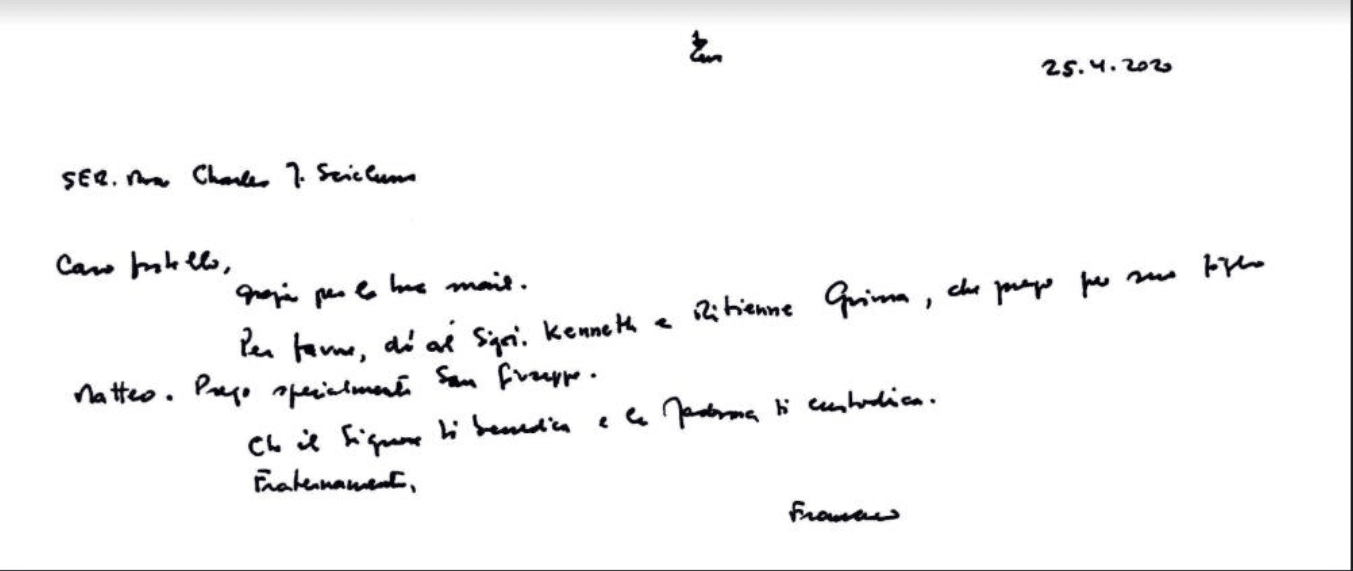 25.4.2020
S.E.R. Mons Charles J. Scicluna
Caro fratello,
grazie per la tua mail.
Per favore, dì ai Sigri. Kenneth e Ritienne Grima, che prego per suo figlio
Matteo. Prego specialmente San Giuseppe.
Che il Signore ti benedica e la Madonna ti custodisca.
Fraternamente,
Francesco